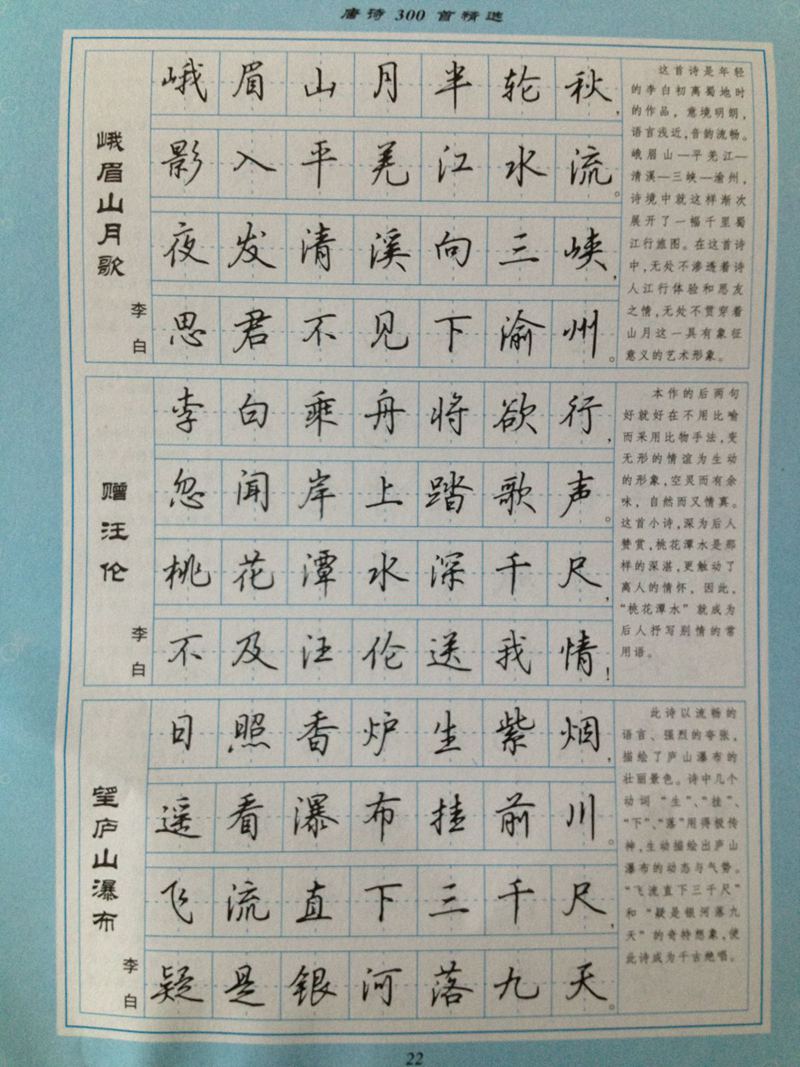 唐诗 300 首精选
峨眉山月歌
李白
峨眉山月半轮秋，
影入平羌江水流。
夜发清溪向三峡，
思君不见下渝州。
这首诗是年轻
的李白初离蜀地时
的作品，意境明朗，
语言浅近，音韵流畅。
峨眉山—平羌江—
清溪—三峡—渝州，
诗境中就这样渐次
展开了一幅千里蜀
江行旅图。在这首诗
中，无处不渗透着诗
人江行体验和思友
之情，无处不贯穿着
山月这一具有象征
意义的艺术形象。
赠汪伦
李白
李白乘舟将欲行，
忽闻岸上踏歌声。
桃花潭水深千尺，
不及汪伦送我情！
本作的后两句
好就好在不用比喻
而采用比物手法，变
无形的情谊为生动
的形象，空灵而有余
味，自然而又情真。
这首小诗，深为后人
赞赏，桃花潭水是那
样的深湛，更触动了
离人的情怀，因此，
“桃花潭水”就成为
后人抒写别情的常
用语。
望庐山瀑布
李白
日照香炉生紫烟，
遥看瀑布挂前川。
飞流直下三千尺，
疑是银河落九天。
此诗以流畅的
语言、强烈的夸张，
描绘了庐山瀑布的
壮丽景色。诗中几个
动词“生”、“挂”、
“下”、“落”用得极传
神，生动描绘出庐山
瀑布的动态与气势。
“飞流直下三千尺”
和“疑是银河落九
天”的奇特想象，使
此诗成为千古绝唱。
22